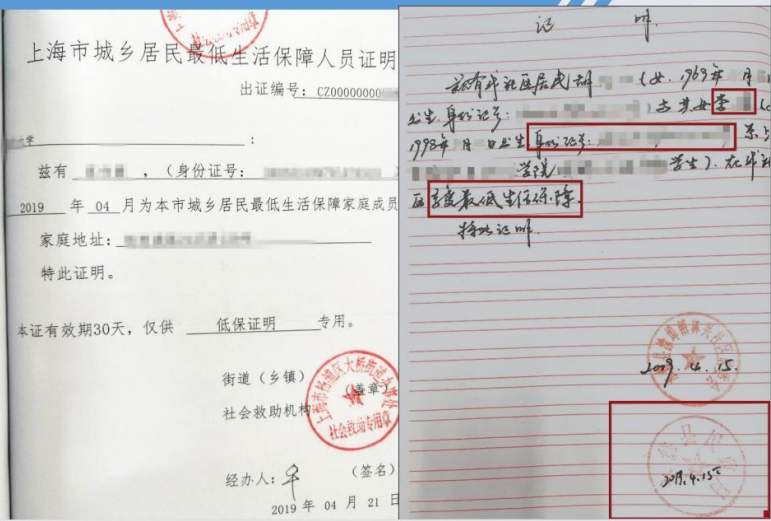 上海市城乡居民最低生活保障人员证明
出证编号：CZ00000000
大学：
兹有，（身份证号：
2019 年 04 月为本市城乡居民最低生活保障家庭成员
家庭地址：
特此证明。
本证有效期30天，仅供 低保证明 专用。
街道（乡镇）
（盖章）
社会救助机构
社会救助专用章
经办人：
（签名）
2019 年 04 月 21 日
证 明
兹有我社区居民胡（女，1969年 月
出生，身份证号：）与其女李
1998年 月 日出生，身份证号：系上
学院 学生），在我社
区享受最低生活保障。
特此证明
2019.4.15.
2019.4.15